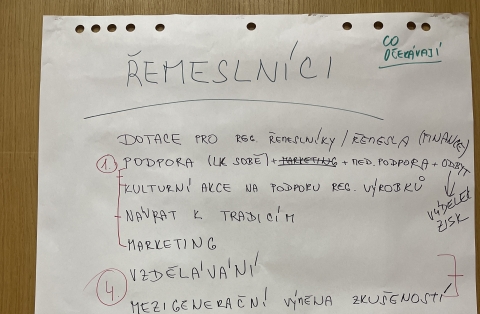 CO
OČEKÁVAJÍ
ŘEMESLNÍCI
DOTACE PRO REG. ŘEMESLNÍKY / ŘEMESLA (FINANCE)
1. PODPORA (LK SOBĚ) + MARKETING + MED. PODPORA + ODBYT
KULTURNÍ AKCE NA PODPORU REG. VÝROBKŮ
VÝDĚLEK
ZISK
NÁVRAT K TRADICÍM
MARKETING
4 VZDĚLÁVÁNÍ
MEZIGENERAČNÍ VÝMĚNA ZKUŠENOSTÍ